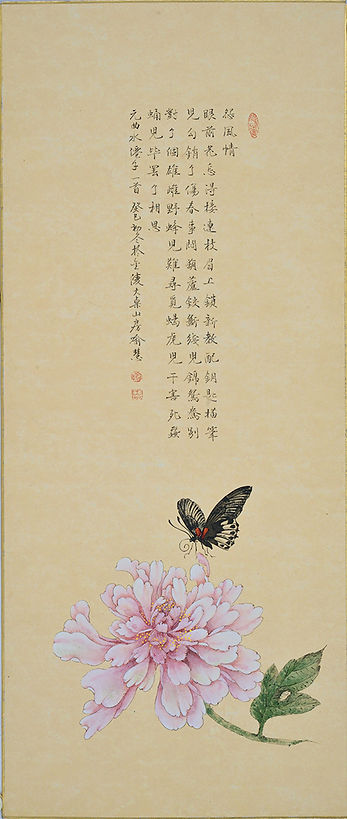 怨風情
眼前花怎得接連枝眉上鎖新教配鑰匙描筆
兒勾銷了傷春事悶葫蘆鉸斷綫兒錦鴛鴦別
對了個雄雌野蜂兒難尋覓蝎虎兒干害死蠶
蛹兒毕罢了相思
元曲水僊子一首癸巳初冬於金陵大桑山房喻慧